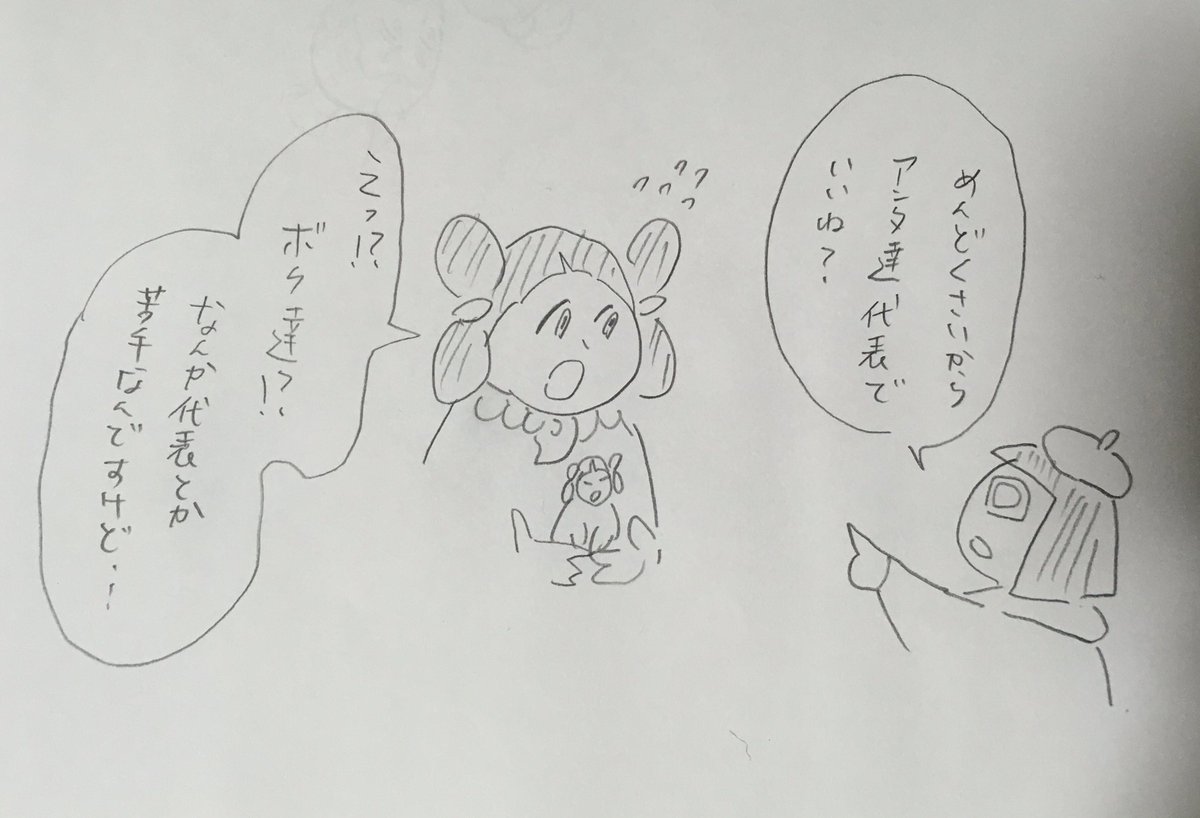 めんどくさいから
アンタ達代表で
いいね?
えっ!?
ボク達!?
なんか代表とか
苦手なんですけど…